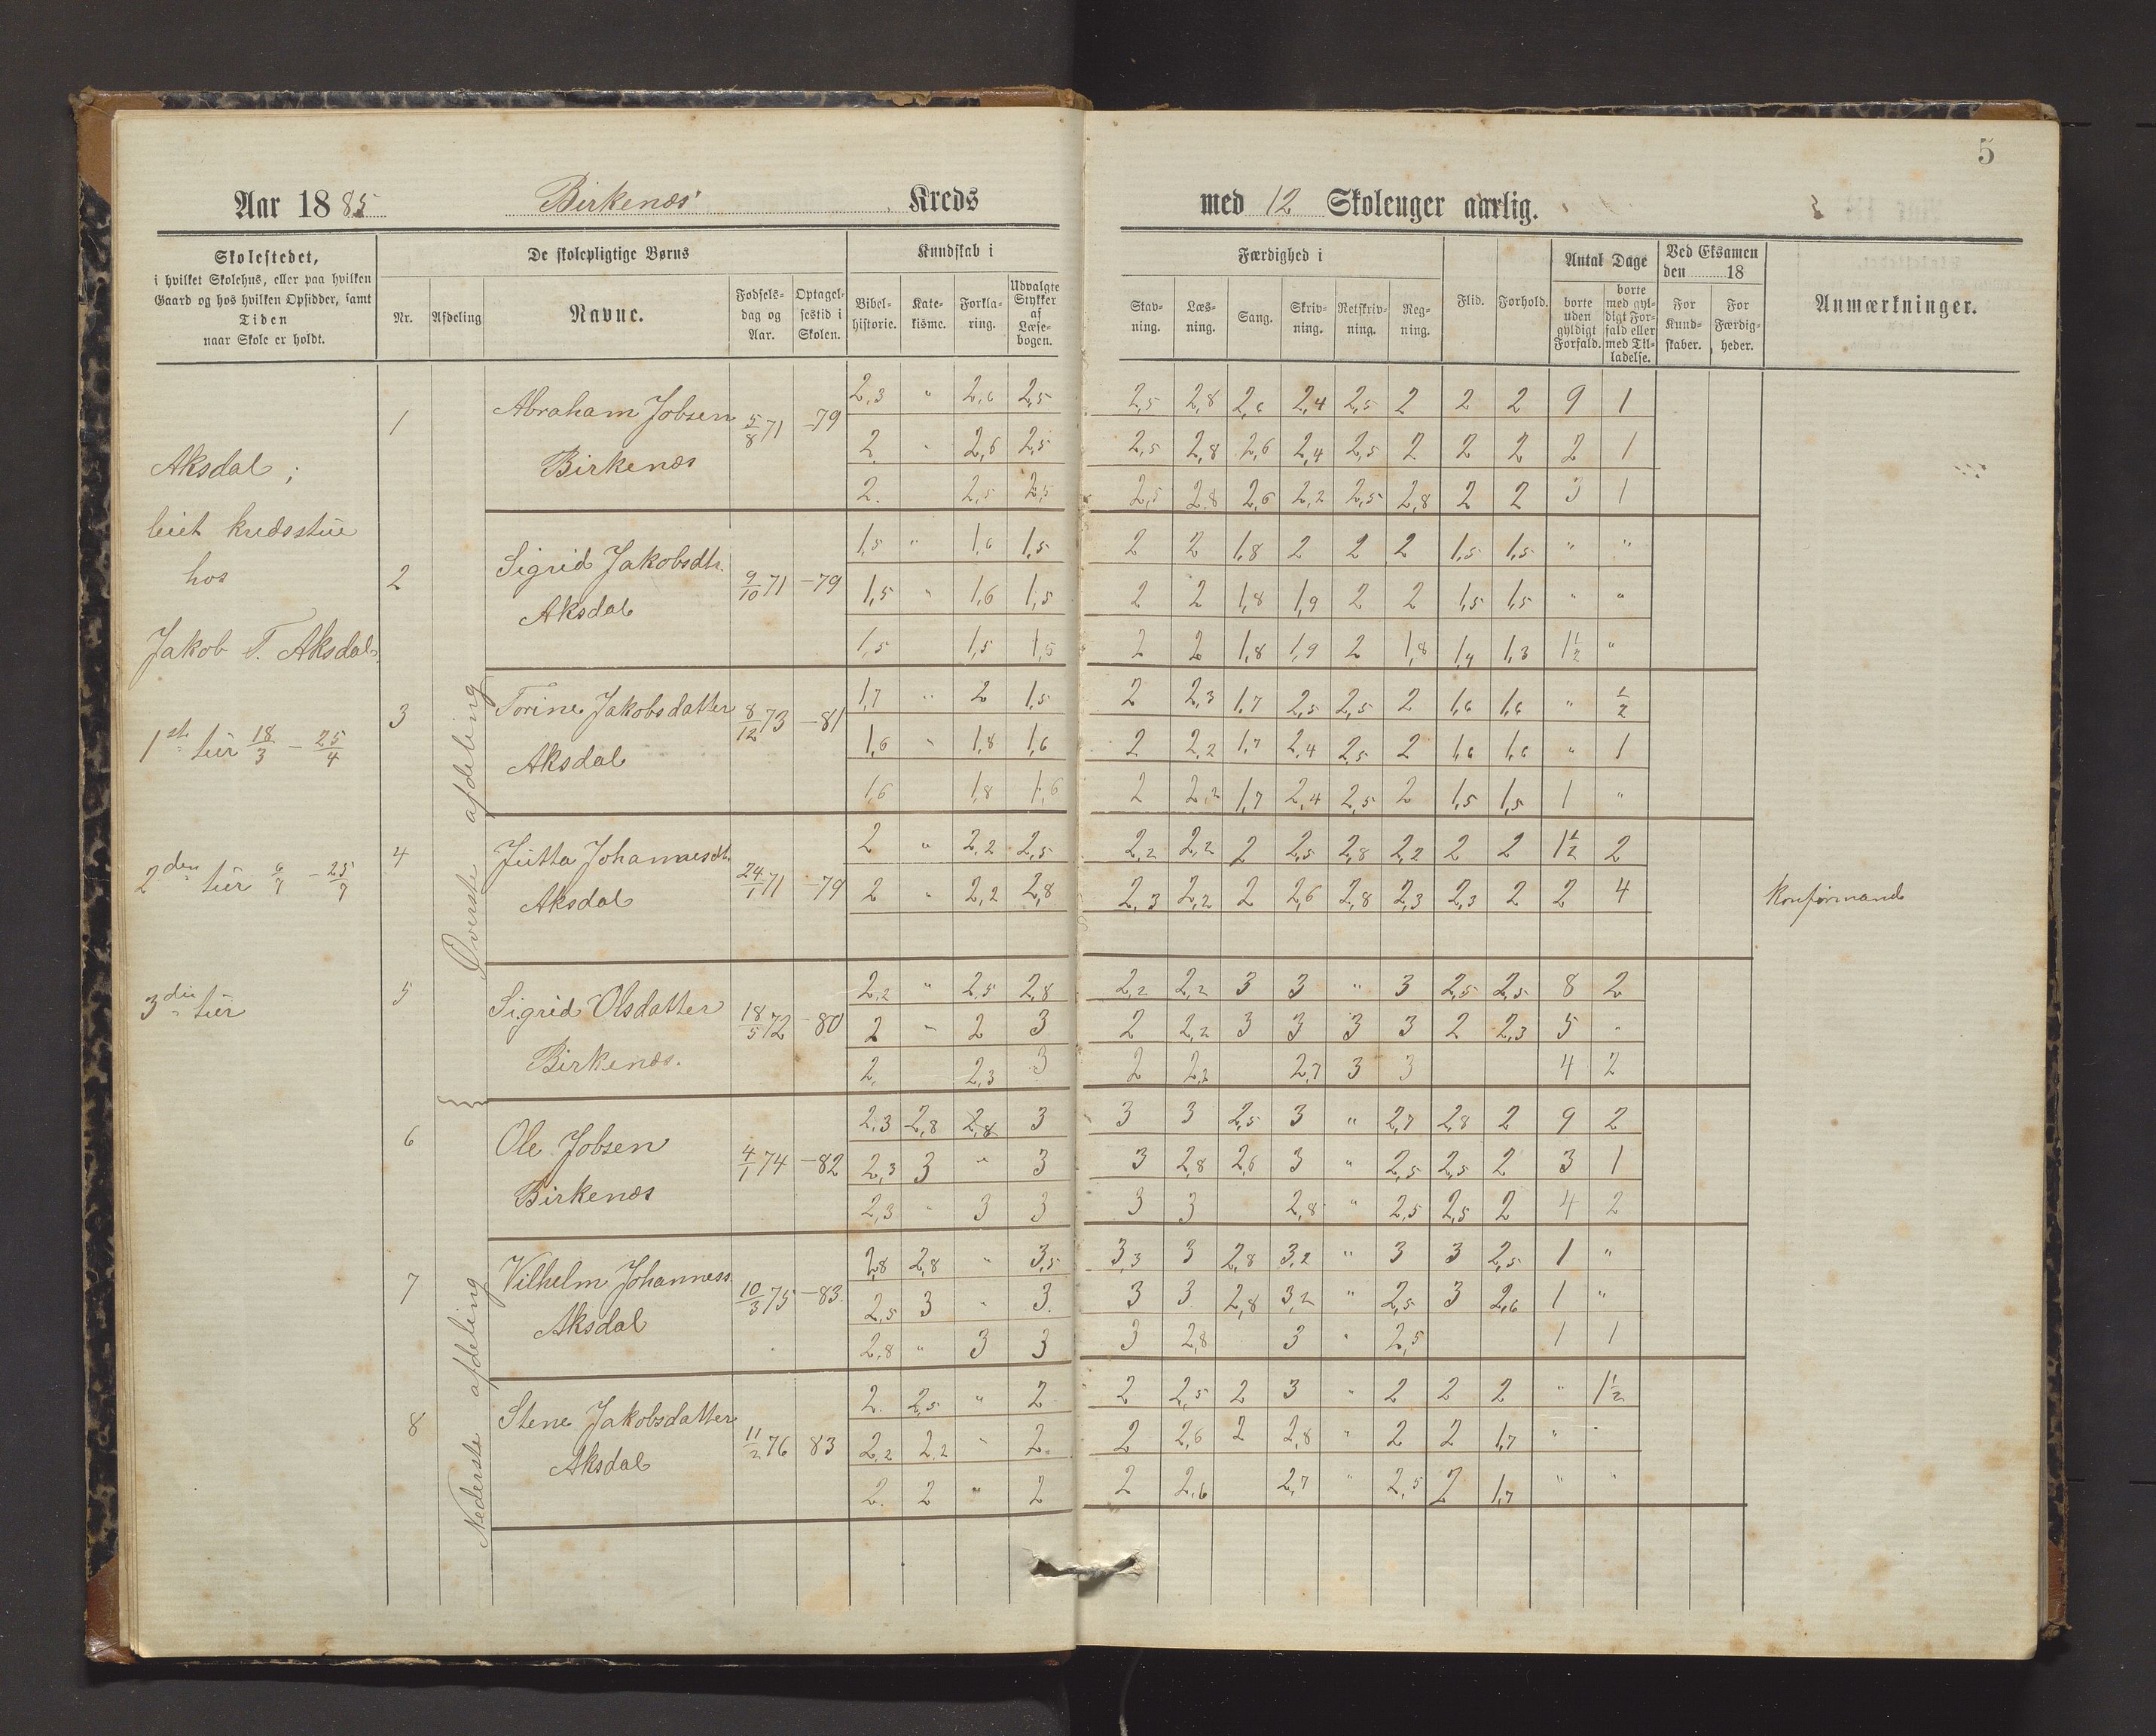 5
Aar 1885 Birkenæs Kreds med 12 Skoleuger aarlig.
Skolestedet,
i hvilket Skolehus, eller paa hvilken
Gaard og hos hvilken Opsidder, samt
Tiden
naar Skole er holdt.
De skolepligtige Børns
Nr. Afdeling Navne. Fødsels-dag og Aar. Optagel-sestid i Skolen.
Kundskab i
Bibel-historie. Kate-kisme. Forkla-ring. Udvalgte Stykker af Læse-bogen.
Færdighed i
Stav-ning. Læs-ning. Sang. Skriv-ning. Retskriv-ning. Reg-ning.
Flid. Forhold.
Antal Dage
borte uden gyldigt Forfald. borte med gyl-digt For-fald eller med Til-ladelse.
Ved Eksamen
den 18
For Kund-skaber. For Færdig-heder.
Anmærkninger.
Aksdal;
leiet kredsstue
hos
Jakob T. Aksdal.
1ste tur 18/3 – 25/4
2den tur 6/7 – 25/7
3die tur
Øverste afdeling
1 Abraham Jobsen Birkenæs 5/8 71 –79
2,3 " 2,6 2,5 2,5 2,8 2,6 2,4 2,5 2 2 2 9 1
2. " 2,6 2,5 2,5 2,8 2,6 2,4 2,5 2 2 2 2 1
2. 2,5 2,5 2,5 2,8 2,6 2,2 2,5 2,8 2 2 3 1
2 Sigrid Jakobsdtr. Aksdal 9/10 71 –79
1,5 " 1,6 1,5 2 2 1,8 2 2 2 1,5 1,5 " "
1,5 " 1,6 1,5 2 2 1,8 1,9 2 2 1,5 1,5 " "
1,5 1,5 1,5 2 2 1,8 1,9 2 1,8 1,4 1,3 1½ "
3 Torine Jakobsdatter Aksdal 8/12 73 –81
1,7 " 2 1,5 2 2,3 1,7 2,5 2,5 2 1,6 1,6 " ½
1,6 " 1,8 1,6 2 2,2 1,7 2,4 2,5 2 1,6 1,6 " 1
1,6 1,8 1,6 2 2,2 1,7 2,4 2,5 2 1,5 1,5 1 "
4 Jutta Johannesdt. Aksdal 24/1 71 –79
2 " 2,2 2,5 2,2 2,2 2 2,5 2,8 2,2 2 2 1½ 2
2 " 2,2 2,8 2,3 2,2 2 2,6 2,8 2,3 2,3 2 2 4 Konfirmand
5 Sigrid Olsdatter Birkenæs. 18/5 72 –80
2,2 " 2,5 2,8 2,2 2,2 3 3 " 3 2,5 2,5 8 2
2 " 2 3 2 2,2 3 3 3 3 2 2,3 5 "
2, 2,3 3 2 2,2 2,7 3 3 4 2
Nederste afdeling
6 Ole Jobsen Birkenæs 4/1 74 –82
2,3 2,8 2,8 3 3 3 2,5 3 " 2,7 2,8 2 9 2
2,3 3 " 3 3 2,8 2,6 3 " 2,5 2,5 2 3 1
2,3 " 3 3 3 3 2,8 " 2,5 2,5 2 4 2
7 Vilhelm Johanness. Aksdal 10/3 75 –83.
2,8 2,8 " 3,5 3,3 3 2,8 3,2 " 3 3 2,5 1 "
2,5 3 " 3. 3 3 2,8 3,2 " 2,5 3 2,6 1 "
2,8 " 3 3 3 2,8 3 " 2,5 1 1
8 Stene Jakobsdatter Aksdal 11/2 76 83
2. 2,5 " 2 2 2,5 2 3 " 2 2 2 " 1½
2,2 2,2 " 2. 2 2,6 2 2,8 " 2 2 1,7 " "
2. 2 " 2 2 2,6 2,7 " 2,5 2 1,7 " "